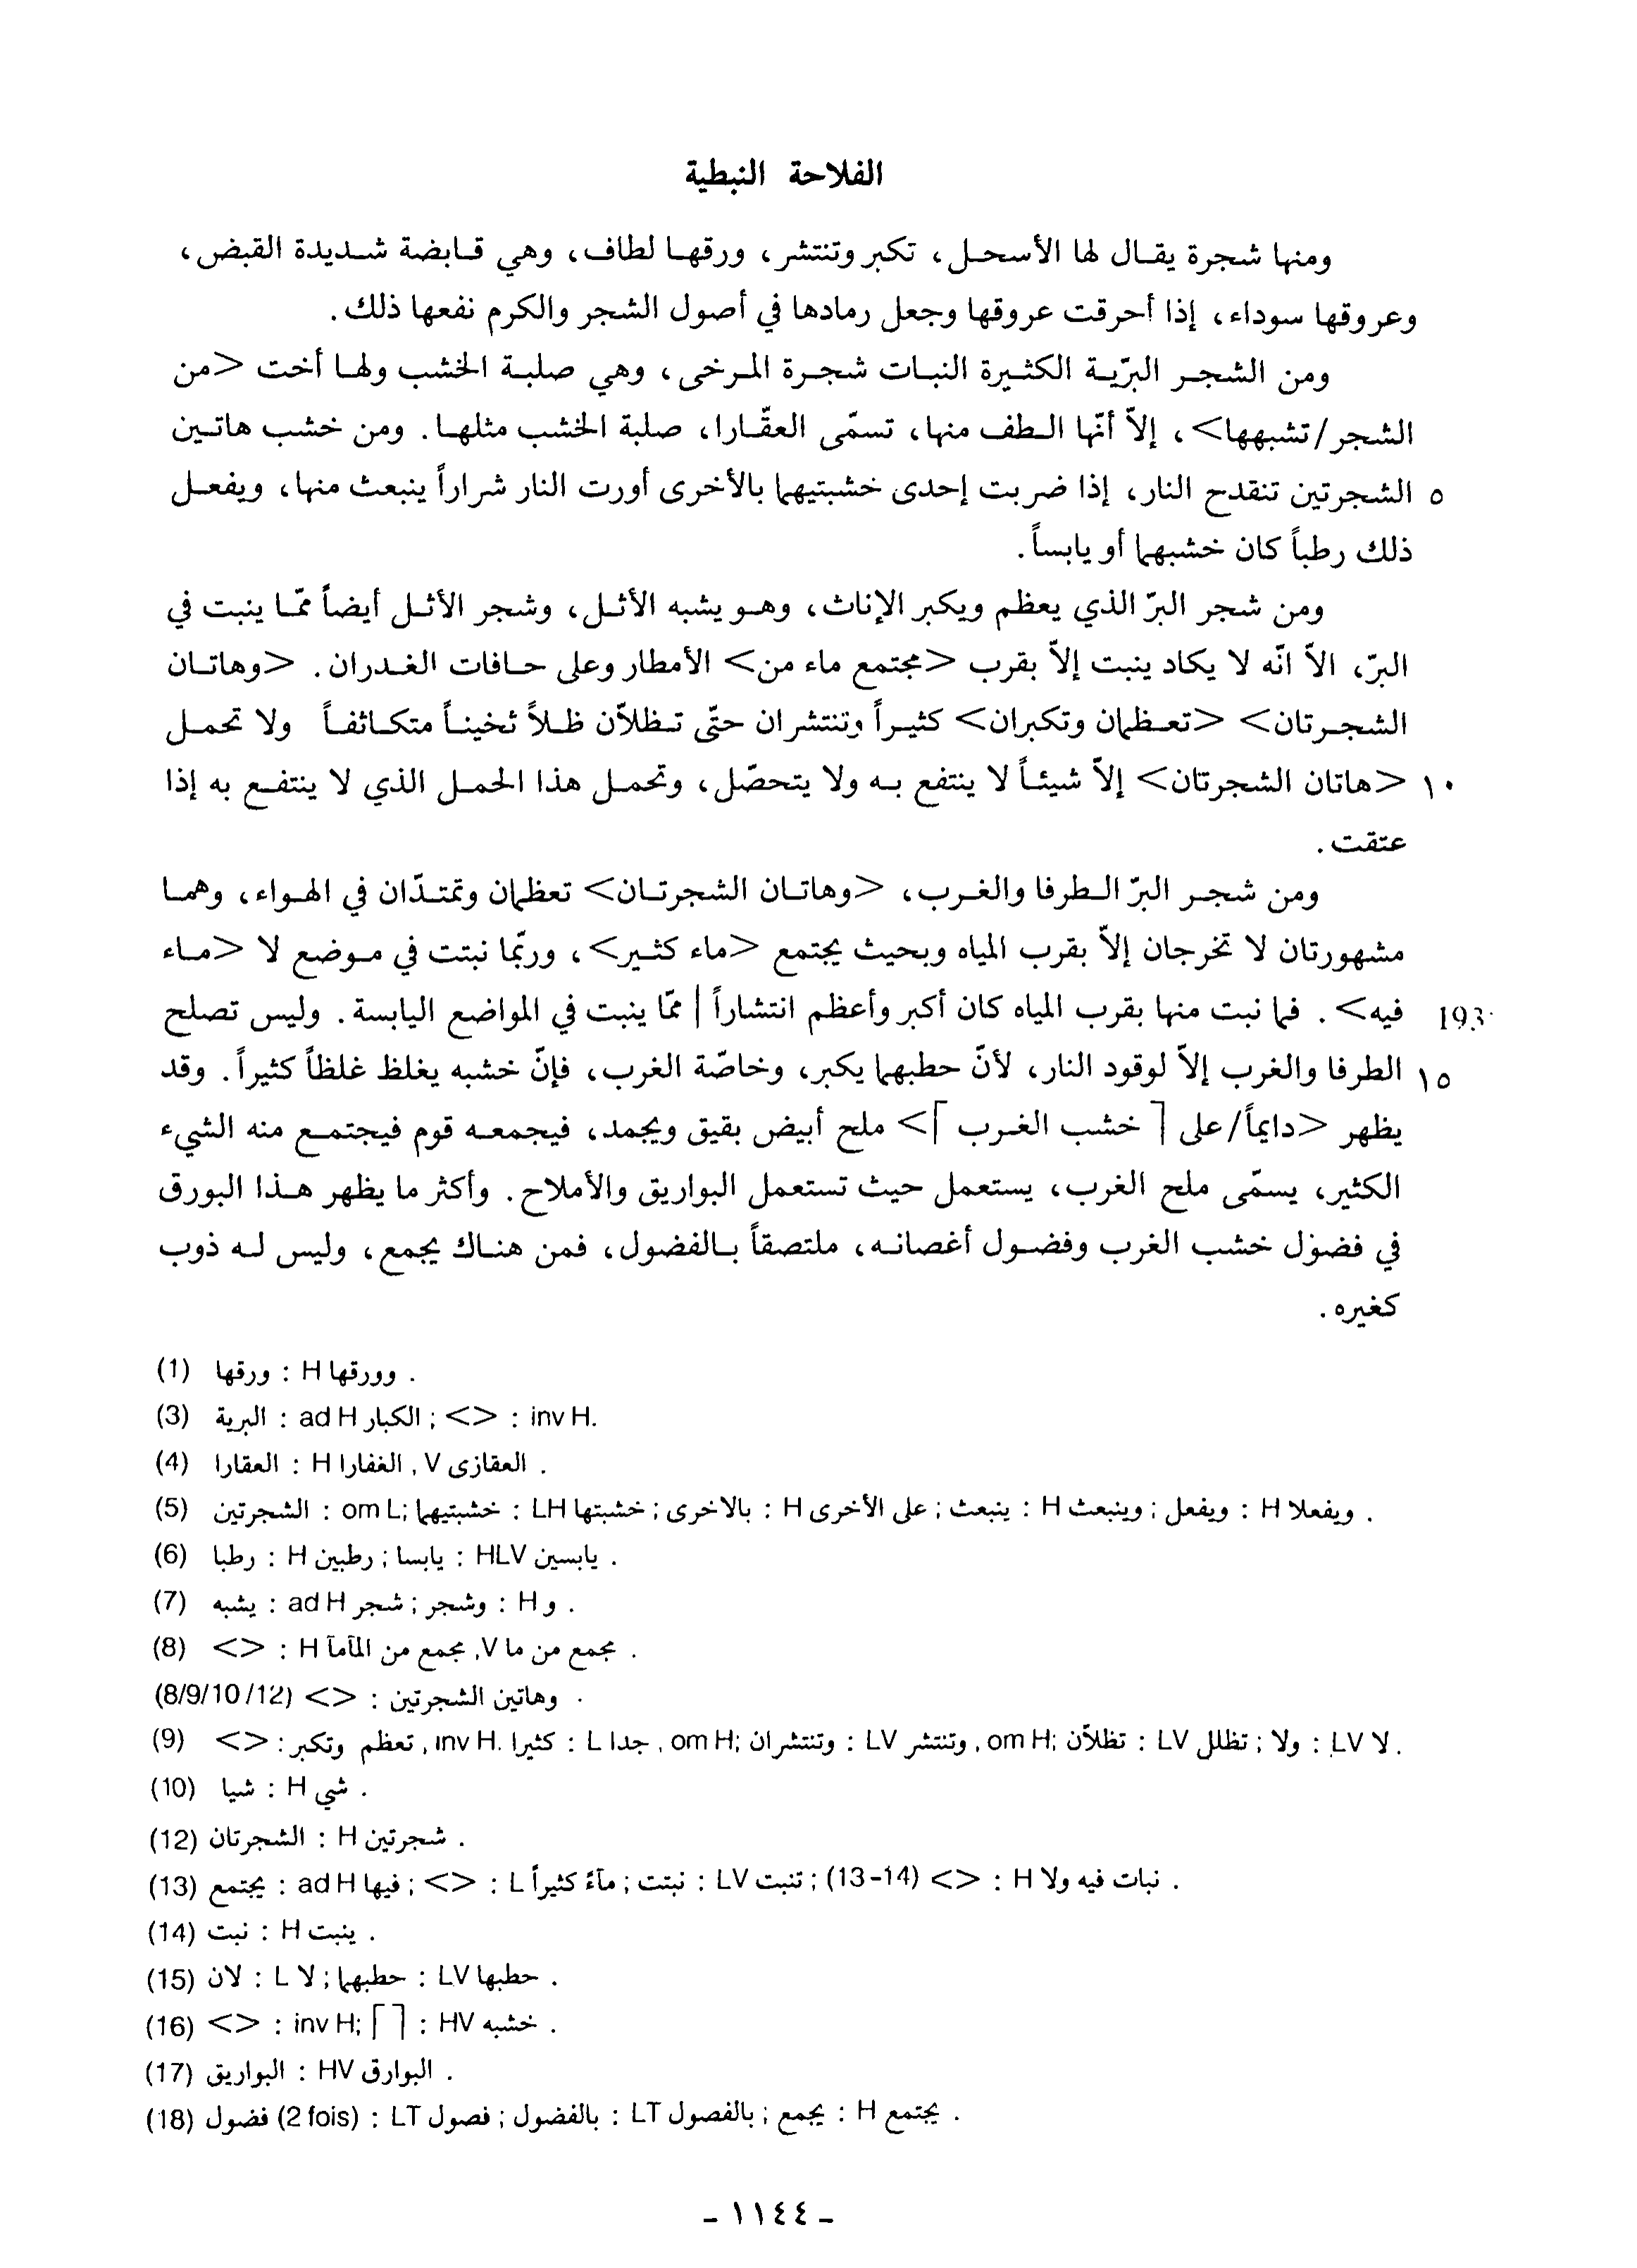 الفلاحة النبطية
ومنها شجرة يقال لها الأسحل، تكبر وتنتشر، ورقها لطاف، وهي قابضة شديدة القبض،
وعروقها سوداء، إذا أحرقت عروقها وجعل رمادها في أصول الشجر والكرم نفعها ذلك.
ومن الشجر البرّية الكثيرة النبات شجرة المرخى، وهي صلبة الخشب ولها أخت <من
الشجر/تشبهها>، إلاّ أنّها الطف منها، تسمّى العقّارا، صلبة الخشب مثلها. ومن خشب هاتين
٥ الشجرتين تنقدح النار، إذا ضربت إحدى خشبتيهما بالأخرى أورت النار شراراً ينبعث منها، ويفعل
ذلك رطباً كان خشبهما أو يابساً.
ومن شجر البرّ الذي يعظم ويكبر الإناث، وهو يشبه الأثل، وشجر الأثل أيضاً ممّا ينبت في
البرّ، الاّ انّه لا يكاد ينبت إلاّ بقرب <مجتمع ماء من> الأمطار وعلى حافات الغدران. <وهاتان
الشجرتان> <تعظمان وتكبران> كثيراً وتنتشران حتّى تظلاّن ظلاّ ثخيناً متكاثفاً ولا تحمل
١٠ <هاتان الشجرتان> إلاّ شيئاً لا ينتفع به ولا يتحصّل، وتحمل هذا الحمل الذي لا ينتفع به إذا
عتقت.
ومن شجر البرّ الطرفا والغرب، <وهاتان الشجرتان> تعظمان وتمتدّان في الهواء، وهما
مشهورتان لا تخرجان إلاّ بقرب المياه وبحيث يجتمع <ماء كثير>، وربّما نبتت في موضع لا <ماء
193 فيه>. فما نبت منها بقرب المياه كان أكبر وأعظم انتشاراً | ممّا ينبت في المواضع اليابسة. وليس تصلح
١٥ الطرفا والغرب إلاّ لوقود النار، لأنّ حطبهما يكبر، وخاصّة الغرب، فإنّ خشبه يغلظ غلظاً كثيراً. وقد
يظهر <دايماً/على ⌉ خشب الغرب ⌈> ملح أبيض بقيق ويجمد، فيجمعه قوم فيجتمع منه الشيء
الكثير، يسمّى ملح الغرب، يستعمل حيث تستعمل البواريق والأملاح. وأكثر ما يظهر هذا البورق
في فضول خشب الغرب وفضول أغصانه، ملتصقاً بالفضول، فمن هناك يجمع، وليس له ذوب
كغيره.
(1) ورقها : H وورقها .
(3) البرية : ad H الكبار ; <> : inv H.
(4) العقارا : H الغفارا , V العقازى .
(5) الشجرتين : om L; خشبتيهما : LH خشبتها ; بالاخرى : H على الأخرى ; ينبعث : H وينبعث ; ويفعل : H ويفعلا .
(6) رطبا : H رطبين ; يابسا : HLV يابسين .
(7) يشبه : ad H شجر ; وشجر : H و .
(8) <> : H مجمع من المآمآ , V مجمع من ما .
(8/9/10/12) <> : وهاتين الشجرتين .
(9) <> : تعظم وتكبر , inv H. كثيرا : L جدا , om H; وتنتشران : LV وتنتشر , om H; تظلاّن : LV تظلل ; ولا : LV لا .
(10) شيا : H شي .
(12) الشجرتان : H شجرتين .
(13) يجتمع : ad H فيها ; <> : L مآءً كثيراً ; نبتت : LV تنبت ; (13-14) <> : H نبات فيه ولا .
(14) نبت : H ينبت .
(15) لان : L لا ; حطبهما : LV حطبها .
(16) <> : inv H; ⌈ ⌉ : HV خشبه .
(17) البواريق : HV البوارق .
(18) فضول (2 fois) : LT فصول ; بالفضول : LT بالفصول ; يجمع : H يجتمع .
- ١١٤٤ -